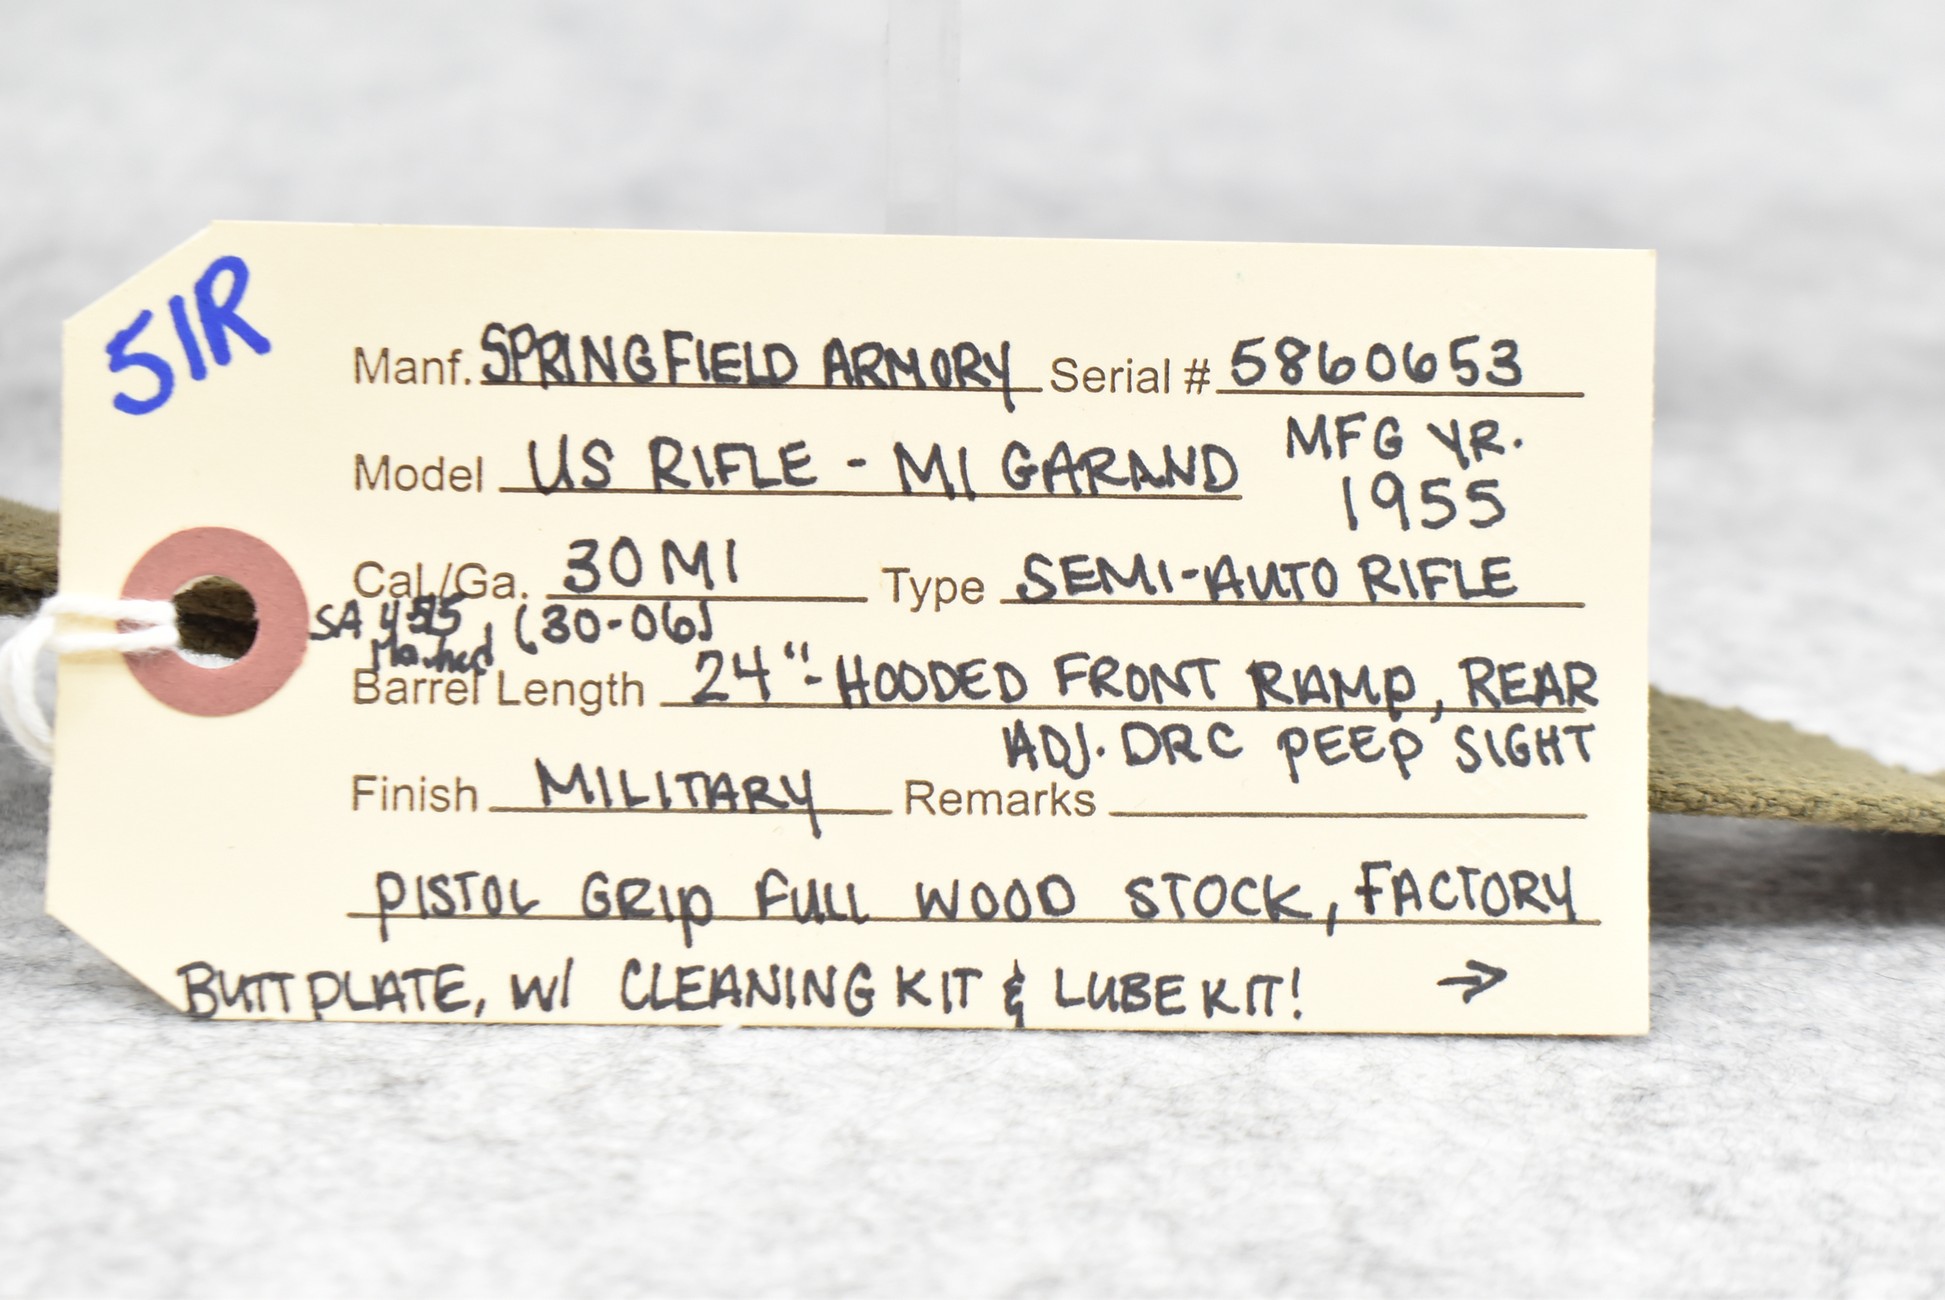 51R
Manf. SPRINGFIELD ARMORY Serial # 5860653
Model US RIFLE - M1 GARAND MFG YR.
1955
Cal./Ga. 30 M1 Type SEMI-AUTO RIFLE
SA 4 55 (30-06)
Marked
Barrel Length 24"- HOODED FRONT RAMP, REAR
ADJ. DRC PEEP SIGHT
Finish MILITARY Remarks
PISTOL GRIP FULL WOOD STOCK, FACTORY
BUTTPLATE, W/ CLEANING KIT & LUBE KIT! →